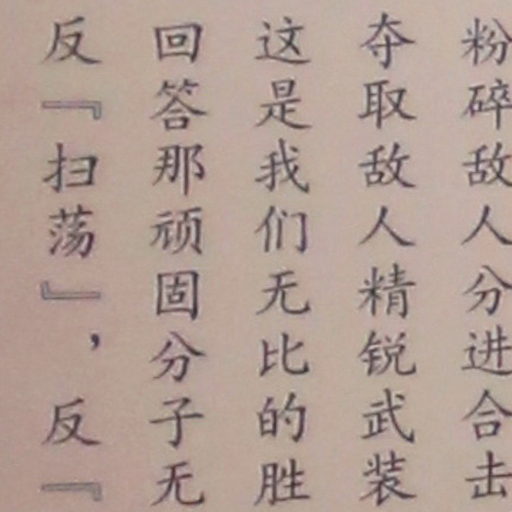 粉碎敌人分进合击
夺取敌人精锐武装
这是我们无比的胜
回答那顽固分子无
反『扫荡』，反『